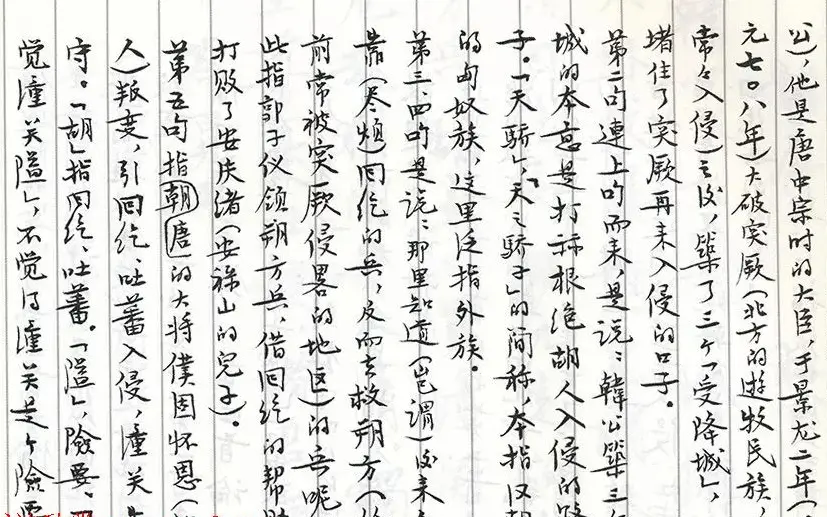 公），他是唐中宗时的大臣，于景龙二年（公
元七〇八年）大破突厥（北方的遊牧民族，
常々入侵）之後，築了三个「受降城」，
堵住了突厥再来入侵的口子。
第二句連上句而来，是说：韓公築三
城的本意是打祘根绝胡人入侵的
子。「天骄」，「天之骄子」的简称，本指汉朝
的匈奴族，这里泛指外族。
第三、四句是说：那里知道（岂谓）後来
靠（尽烦）回纥的兵，反而去救朔方（
前常被突厥侵畧的地区）的兵呢
此指郭子仪领朔方兵，借回纥的帮助
打败了安庆绪（安禄山的兒子）。
第五句指朝唐的大将僕固怀恩（
人）叛变，引回纥、吐蕃入侵，潼关
守。「胡」指回纥、吐蕃。「隘」，險要、
觉潼关隘」，不觉得潼关是个險要